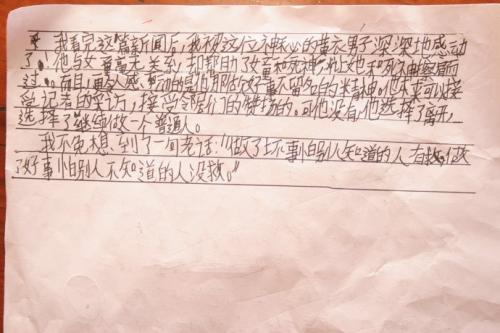 我看完这篇新闻后,我被这位神秘的黄衣男子深深地感动
了。他与女童毫无关系,却帮助了女童和死神 让她和死神擦肩而
过。而且,更令人感动的是他那做好事不留名的精神。他本来可以接
受记者的采访,接受邻居们的 的。可他没有,他选择了离开,
选择了继续做一个普通人。
我不免想到了一句老话:“做了坏事怕别人知道的人有救,做
了好事怕别人不知道的人没救。”